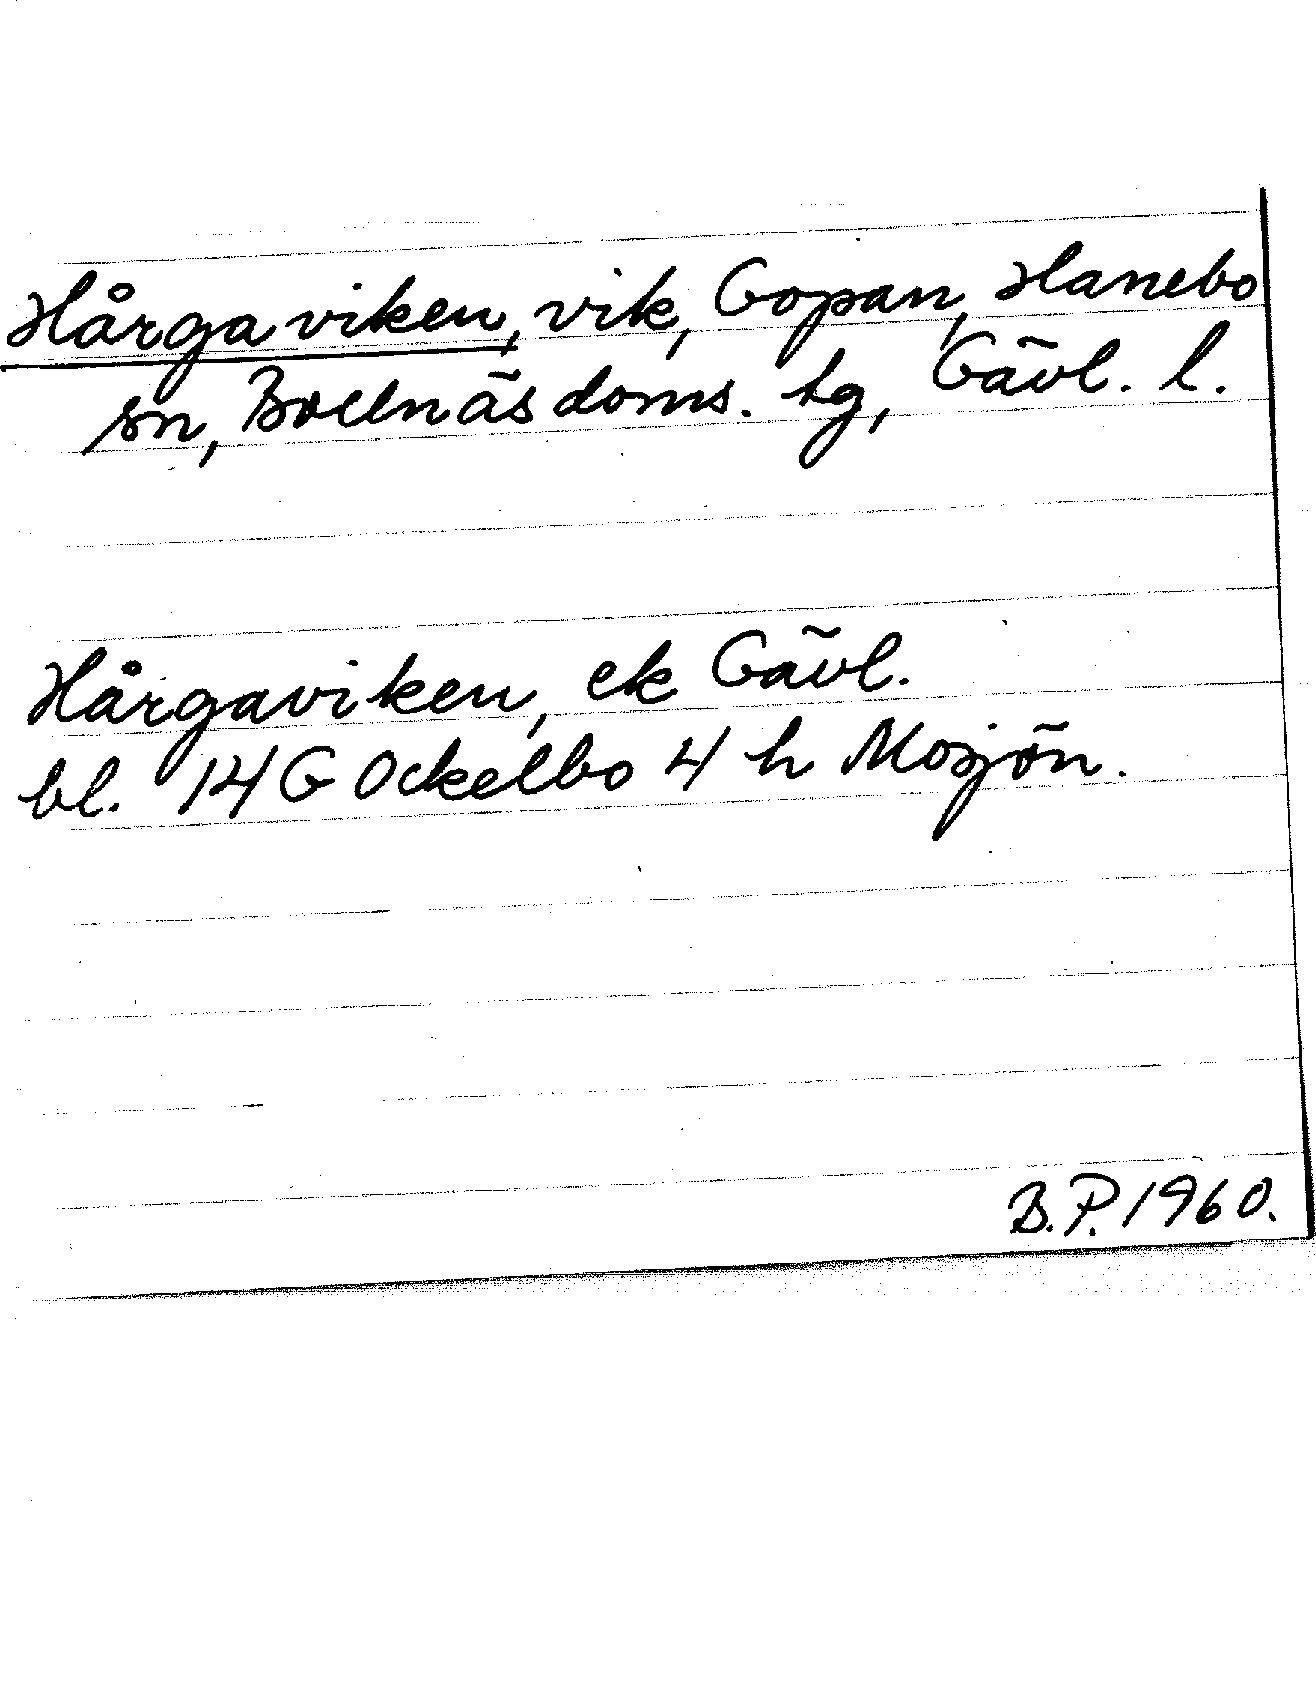 Hårgaviken, vik, Gopan, Hanebo
sn, Bollnäs doms. tg, Gävl. l.
Hårgaviken, ek Gävl.
bl. 14 G Ockelbo 4 h Mosjön.
B.P. 1960.